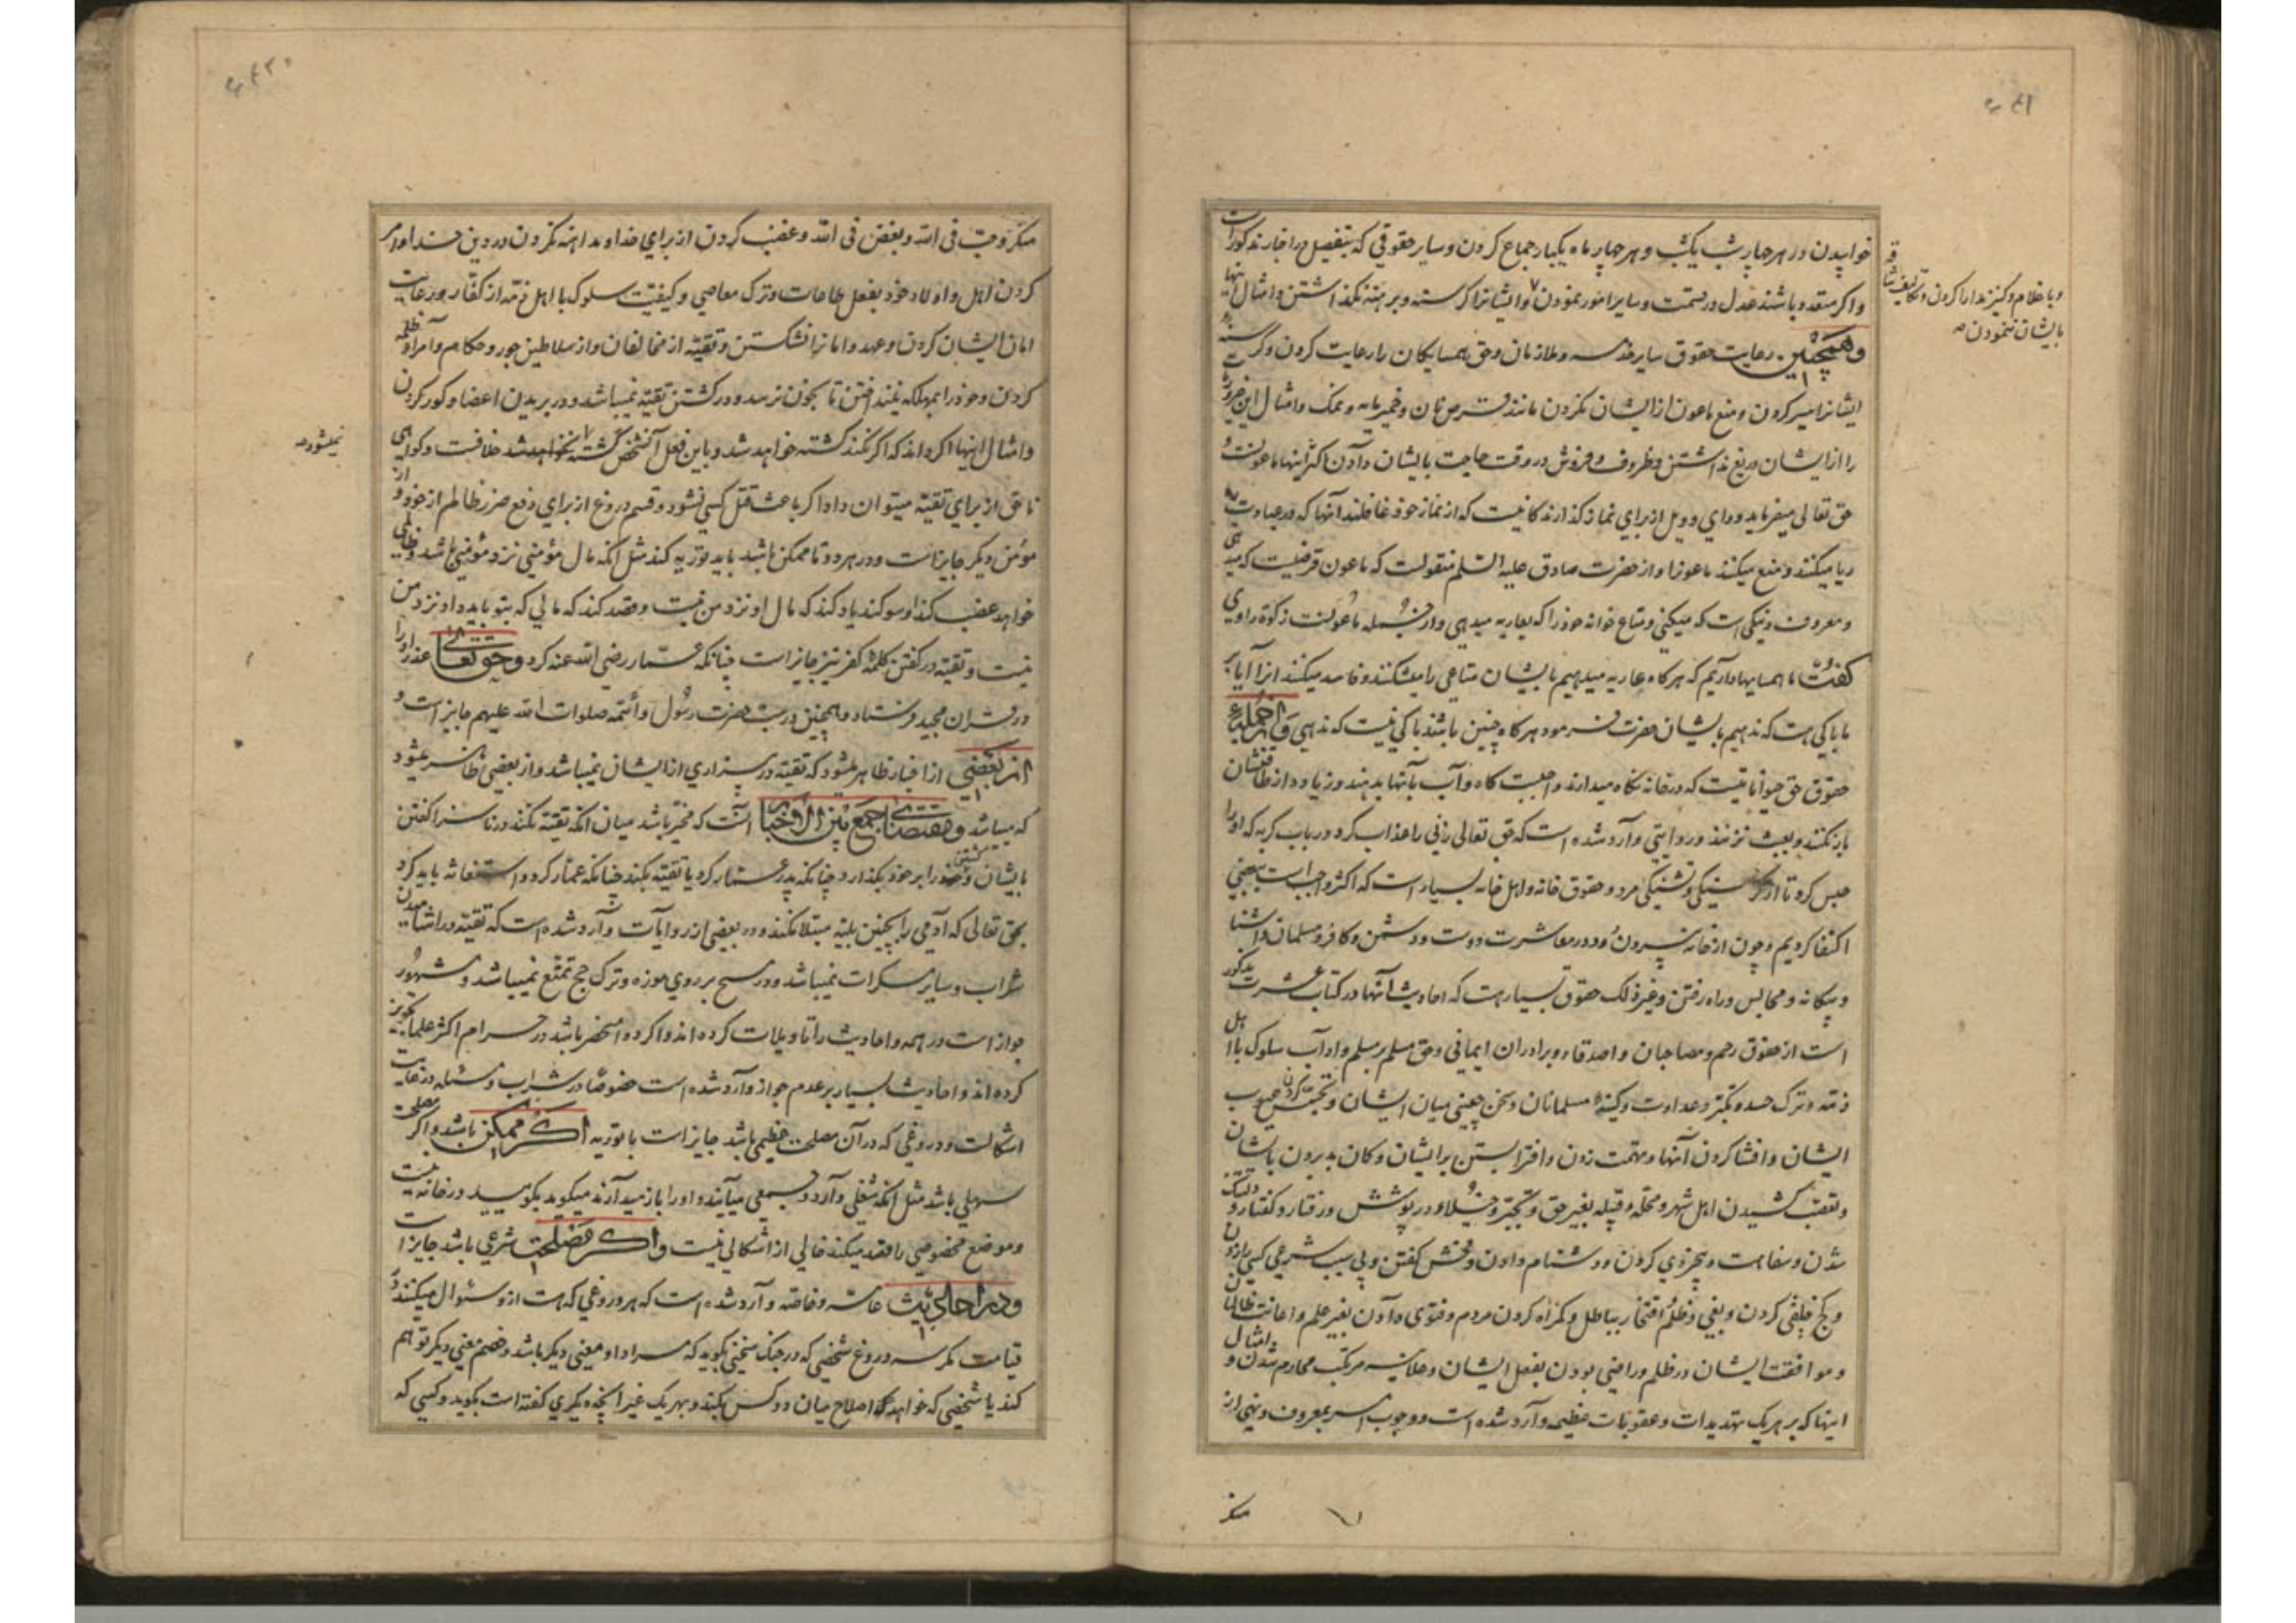 خوابیدن در هر چهار شب یکشب و هر چهار ماه یکبار جماع کردن و سایر حقوقی که بتفصیل در اخبار مذکور است
و اگر متعدد باشند عدل در قسمت و سایر امور نمودن و ایشانرا گرسنه و برهنه نگذاشتن و امثال اینها
و با غلام و کنیز مدارا کردن و تکالیف شاقه
بایشان ننمودن
وهمچنین رعایت حقوق سایر خدمه و ملازمان و حق همسایکان را رعایت کردن و گرسنه
ایشانرا سیر کردن و منع ماعون از ایشان نکردن مانند قرص نان و خمیرمایه و نمک و امثال این ضروریات
را از ایشان دریغ نداشتن و ظروف و فروش در وقت حاجت بایشان دادن اکثر اینها ماعونست و
حق تعالی میفرماید و وای و ویل از برای نماز کذارندکانیست که از نماز خود غافلند آنها که در عبادت
ریا میکنند و منع میکنند ماعونرا و از حضرت صادق علیه السلم منقولست که ماعون قرضیست که میدهی
و معروف و نیکی است که میکنی و متاع خوانه خود را که بعاریه میدهی و از جمله ماعونست زکوة راوی
کفت ما همسایها داریم که هرکاه عاریه میدهیم بایشان متاعی را میشکنند و فاسد میکنند انرا آیا بر
ما باکی هست که ندهیم بایشان حضرت فرمود هرکاه چنین باشند باکی نیست که ندهی وازجمله
حقوق حق حیواناتیست که در خانه نکاه میدارند واجبست کاه و آب بآنها بدهند و زیاده از طاقتشان
بار نکنند و بعبث نزنند و روایتی وارد شده است که حق تعالی زنی را عذاب کرد در باب کربه که او را
حبس کرد تا از کرسنکی و تشنکی مرد و حقوق خانه و اهل خانه بسیار است که اکثر واجب است ببعضی
اکتفا کردیم و چون از خانه بیرون رود در معاشرت دوست و دشمن و کافر و مسلمان و آشنا
و بیکانه و مجالس و راه رفتن و غیر ذلک حقوق بسیار هست که احادیث آنها در کتاب عشرت مذکور
است از حقوق رحم و مصاحبان و اصدقا و برادران ایمانی و حق مسلم بر مسلم و آداب سلوک با اهل
ذمه و ترک حسد و تکبر و عداوت و کینه مسلمانان و سخن چینی میان ایشان و تجسس کردن عیوب
ایشان و افشا کردن آنها و تهمت زدن و افترا بستن بر ایشان و کمان بد بردن بایشان
و تعصب کشیدن اهل شهر و محله و قبیله بغیر حق و تجبر و خیلا در پوشش و رفتار و کفتار و
شدن و سفاهت و بیخردی کردن و دشنام دادن و فحش کفتن و بی سبب شرعی کسی را زدن
و کج خلقی کردن و بغی و ظلم و افتخار بباطل و کمراه کردن مردم و فتوی دادن بغیر علم و اعانت ظالمان
و موافقت ایشان در ظلم و راضی بودن بفعل ایشان و علانیه مرتکب محارم شدن و امثال
اینها که بر هریک تهدیدات و عقوبات عظیمه وارد شده است و وجوب امر بمعروف و نهی از
منکر
منکر و حب فی الله و بغض فی الله و غضب کردن از برای خدا و مداهنه نکردن در دین خدا و امر
کردن اهل و اولاد خود بفعل طاعات و ترک معاصی و کیفیت سلوک با اهل ذمه از کفار و رعایت
امان ایشان کردن و عهد و امانرا نشکستن و تقیه از مخالفان و از سلاطین جور و حکام و امراء ظلمه
کردن و خود را بمهلکه نینداختن تا بخون نرسد و در کشتن تقیه نمیباشد و در بریدن اعضا و کور کردن
و امثال اینها اکر داند که اکر نکند کشته خواهد شد و باین فعل آنشخص کشته نخواهد شد خلافست و کواهی
نمیشود
ناحق از برای تقیه میتوان داد اکر باعث قتل کسی نشود و قسم دروغ از برای دفع ضرر ظالم از خود و از
مؤمن دیکر جایز است و در هر دو تا ممکن باشد باید توریه کند مثل انکه مال مؤمنی نزد مؤمنی باشد و ظالمی
خواهد غصب کند او سوکند یاد کند که مال او نزد من نیست و قصد کند که مالی که بتو باید داد نزد من
نیست و تقیه در کفتن کلمه کفر نیز جایز است چنانکه عمار رضی الله عنه کرد وحق تعالی عذر او را
در قرآن مجید فرستاد و همچنین در سب حضرت رسول و ائمه صلوات الله علیهم جایز است و
از بعضی از اخبار ظاهر میشود که تقیه در بیزاری از ایشان نمیباشد و از بعضی ظاهر میشود
که میباشد و مقتضای جمع بین الاخبار آنست که مخیر باشد میان انکه تقیه نکند در ناسزا کفتن
بایشان و کشتن خود را بر خود بکذارد چنانکه پدر عمار کرد یا تقیه بکند چنانکه عمار کرد و استعاذه باید کرد
بحق تعالی که آدمی را بچنین بلیه مبتلا نکند و در بعضی از روایات وارد شده است که تقیه در اشامیدن
شراب و سایر مسکرات نمیباشد و در مسح بر روی موزه و ترک حج تمتع نمیباشد و مشهور
جواز است در همه و احادیث را تاویلات کرده اند و اکر دوا منحصر باشد در حرام اکثر علما تجویز
کرده اند و احادیث بسیار بر عدم جواز وارد شده است خصوصا در شراب و مسئله در غایت
اشکالست و دروغی که در آن مصلحت عظیمی باشد جایز است با توریه اگر ممکن باشد و اکر مصلحت
سهلی باشد مثل انکه شغلی دارد و جمعی میآیند و او را باز میدارند میکوید بکویید در خانه نیست
و موضع مخصوصی را قصد میکند خالی از اشکالی نیست واگر مصلحت شرعی باشد جایز است
ودر احادیث عامه و خاصه وارد شده است که هر دروغی که هست از و سئوال میکنند در
قیامت مکر سه دروغ شخصی که در جنک سخنی بکوید که مراد او معنی دیکر باشد و خصم معنی دیکر توهم
کند یا شخصی که خواهد اصلاح میان دو کس بکند و بهریک غیر انچه دیکری کفته است بکوید و کسی که